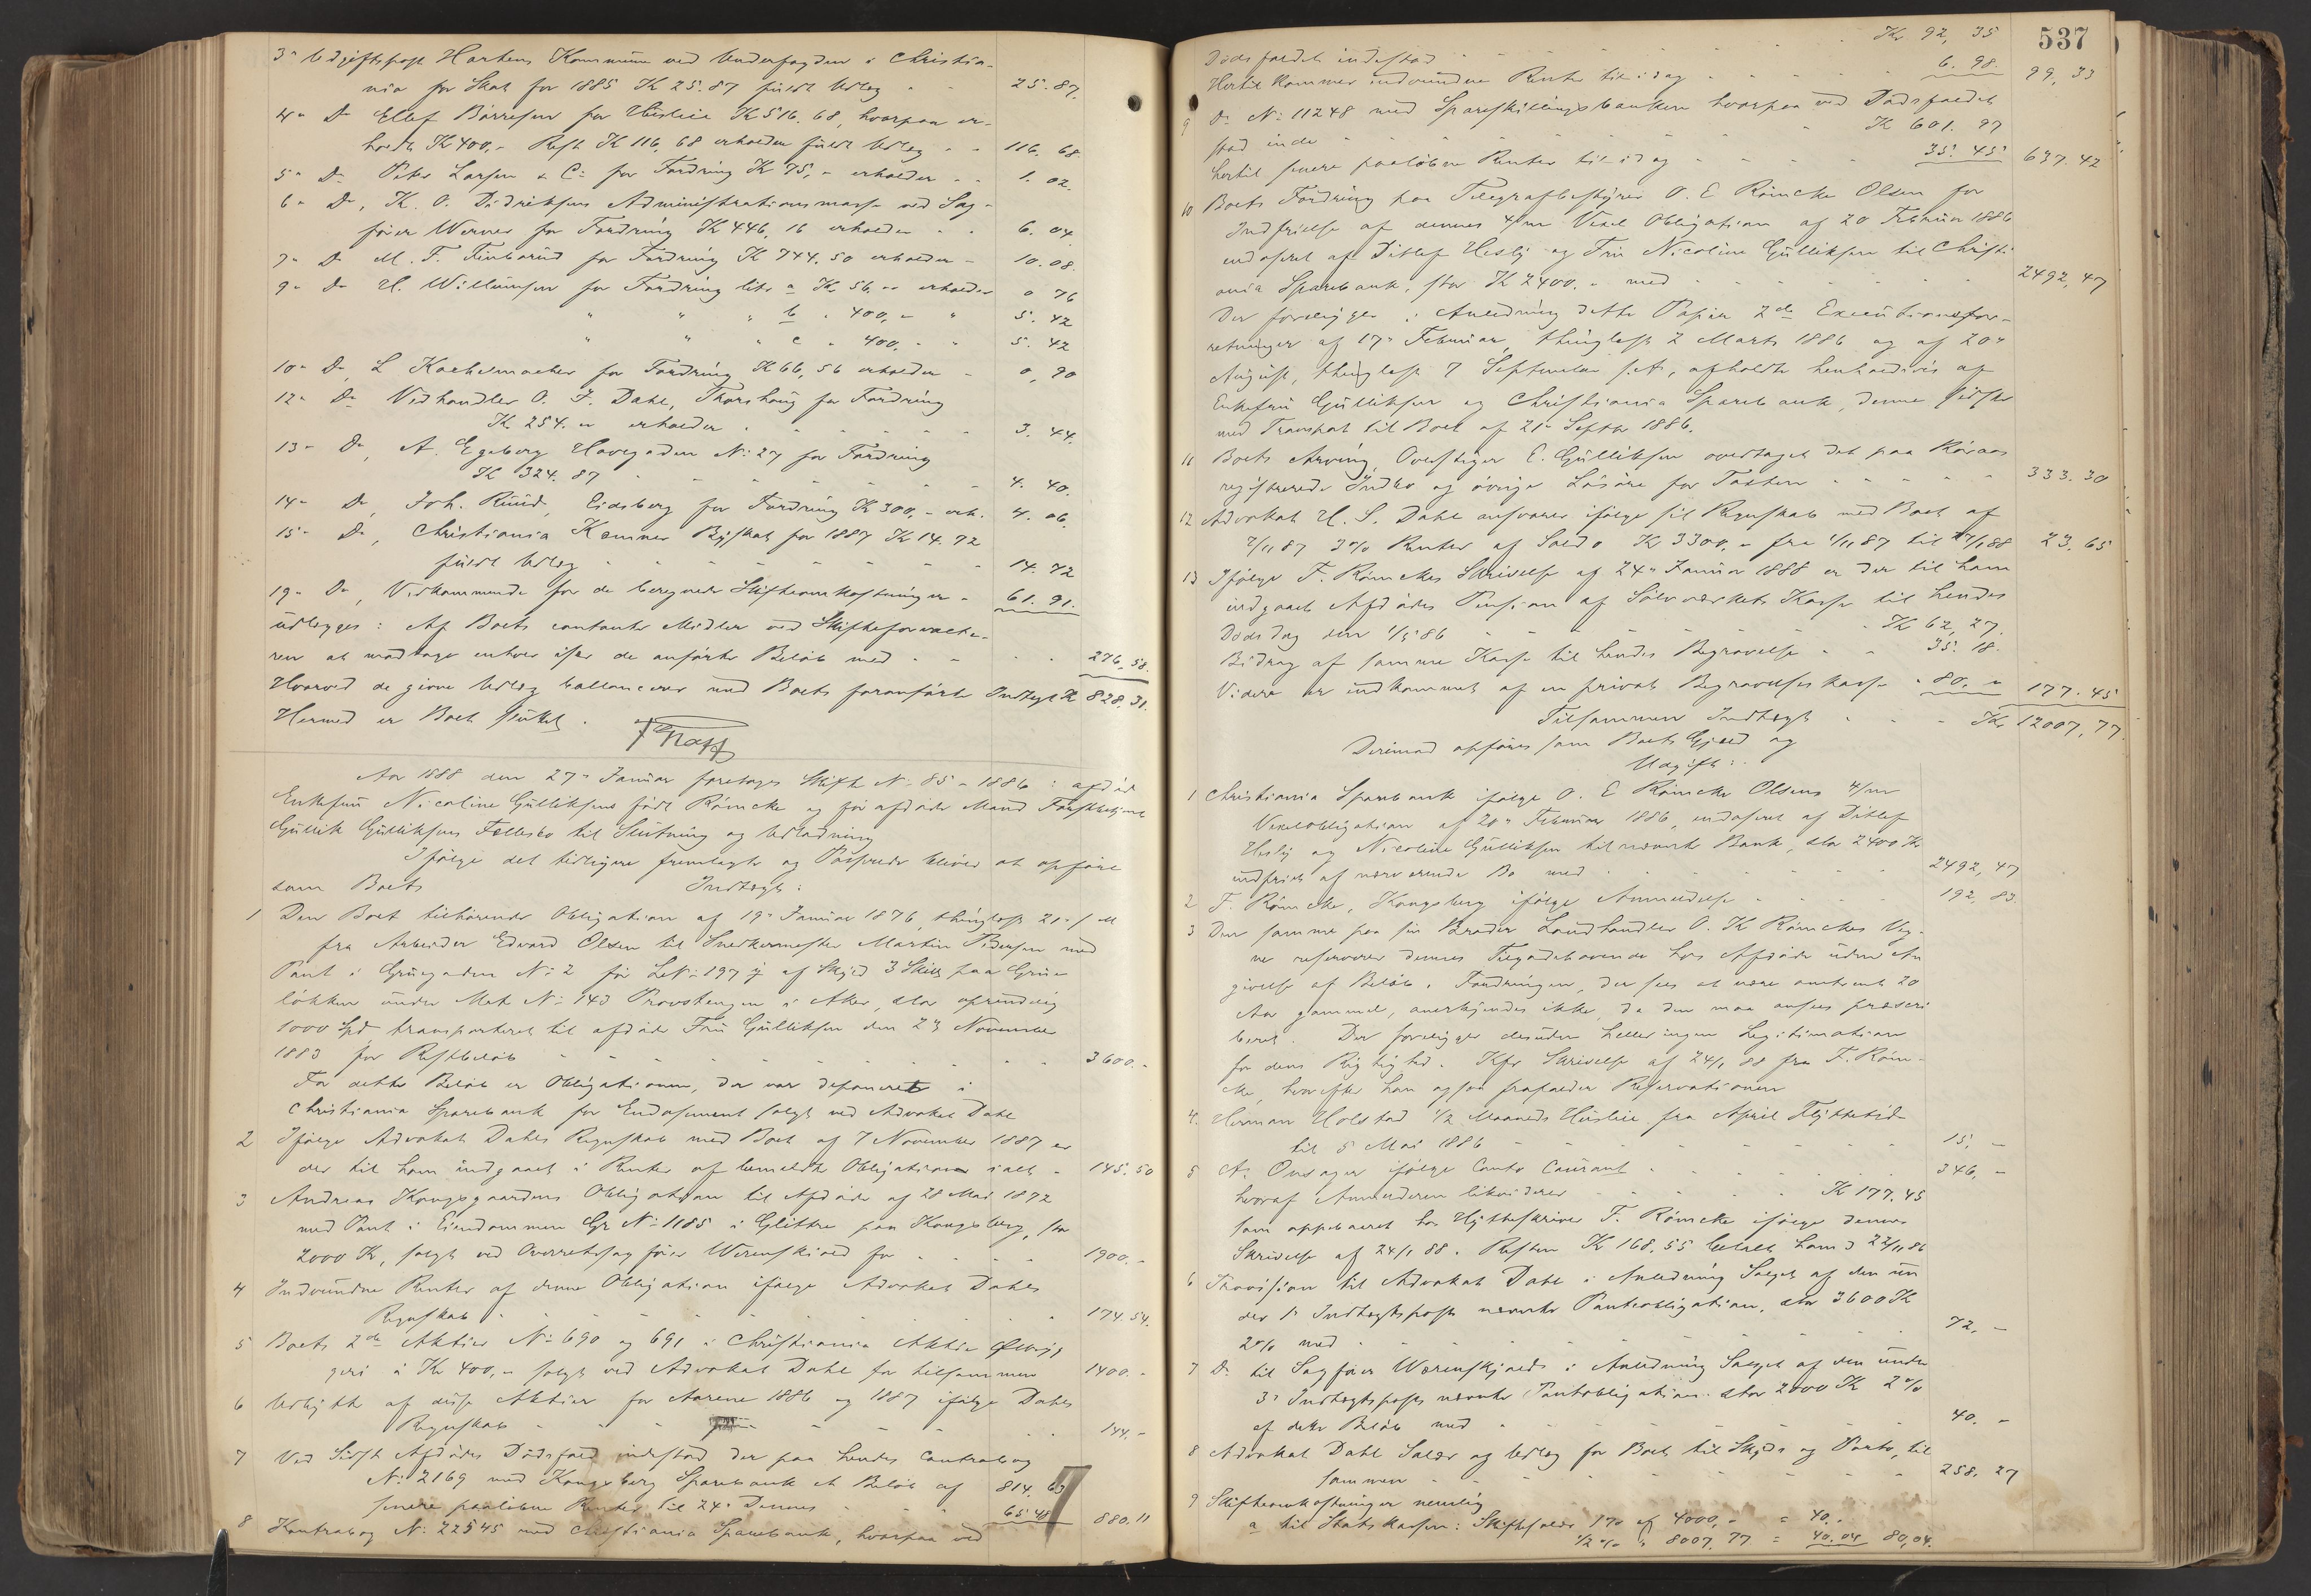 3° Udgiftspost Hortens Kommune ved Underfogden i Christia-
nia for Skat for 1885 K 25.87 fuldt Udlæg - - 25.87.
4° Do Ellef Børresen for Husleie K 516.68, hvorpaa er-
holdt K 400,- Rest K 116,68 erholder fuldt Udlæg - - 116.68
5° Do Peter Larsen & Co for Fordring K 75,- erholder - - 1.02.
6° Do, K. O. Didriksens Administrationsmasse ved Sag-
fører Werner for Fordring K 446,16 erholder - - 6.04
7° Do M. F. for Fordring K 744.50 erholder - 10.08.
9° Do H. Willumsen for Fordring litr a K 56.- erholder 0 76
" " " b " 400,- " 5.42
" " " c " 400,- " 5.42
10° Do, L for Fordring K 66,56 erholder - 0,90
12° Do Vedhandler O. F. Dahl, Thorshaug for Fordring
K 254.- erholder - - - - - 3.44.
13° Do, A. Egeberg Havegaden No 27 for Fordring
K 324.87 - - - - - 4.40.
14° Do, Joh. Ruud, Eidsberg for Fordring K 300,- erh. 4.06.
15° Do, Christiania Kæmner Byskat for 1887 K 14.72
fuldt Udlæg - - - - - 14.72
19° Do, Vedkommende for de beregnede Skifteomkostninger - 61.91.
udlægges: Af Boets contante Midler ved Skifteforvalte-
ren at modtage enhver især de anførte Beløb med - - - 276,58.
Hvorved de givne Udlæg ballancerer med Boets foranførte Indtægt K 828.31.
Hermed er Boet sluttet.
Aar 1888 den 27° Januar foretoges Skifte No 85 - 1886 i afdød
Enkefru Nicoline Gulliksens født Rømcke og før afdøde Mand
Gullik Gulliksens Fællesbo til Slutning og Udlodning
Ifølge det tidligere fremlagte og Passerede bliver at opføre
som Boets Indtægt:
1 Den Boet tilhørende Obligation af 19° Januar 1876, thinglæst 21° s M
fra Arbeider Edvard Olsen til Snedkermester Martin Pedersen med
Pant i Gruegaden No 2 før L No 197 af Skyld 3 Skill paa Grüner
løkken under Mat No 143 Provstengen i Aker, stor oprindelig
1000 Spd transporteret til afdøde Fru Gulliksen den 23 November
1883 for Restbeløb - - - - - 3600.-
For dette Beløb er Obligationen, der var deponeret i
Christiania Sparebank for Endosement solgt ved Advokat Dahl
2 Ifølge Advokat Dahls Regnskab med Boet af 7 November 1887 er
der til ham indgaaet i Renter af bemeldte Obligation ialt - 145.50
3 Andreas Kongsgaardens Obligation til Afdøde af 28 Mai 1872
med Pant i Eiendommen Gr No 1185 i Glittre paa Kongsberg, stor
2000 K, solgt ved Overretssagfører Werenskiold for - - - 1900.-
4 Indvundne Renter af denne Obligation ifølge Advokat Dahls
Regnskab - - - - - 174.54.
5 Boets 2de Aktier No 690 og 691 i Christiania Aktie Ølbryg
geri à Kr 400,- solgt ved Advokat Dahl for tilsammen 1400.-
6 Udbytte af disse Aktier for Aarene 1886 og 1887 ifølge Dahls
Regnskab - - - - - 144.-
7 Ved Sidst Afdødes Dødsfald indestod der paa hendes Contrabog
No 2169 med Kongsberg Sparebank et Beløb af 814.63
senere paaløbne Renter til 24° Dennes - 65.48 880.11
8 Kontrabog No 22545 med Christiania Sparebank, hvorpaa ved
537
Dødsfaldet indestod - - - Kr 92,35
Hertil kommer indvundne Renter til idag - - - 6.98. 99,33
9 Do No 11248 med Spareskillingsbanken hvorpaa ved Dødsfaldet
stod inde - - - K 601.97
hertil senere paaløbne Renter til idag - - - 35.45 637.42
10 Boets Fordring paa Telegrafbestyrer O. E Rømcke Olsen for
Indfrielse af dennes 4/mr Vexel Obligation af 20 Februar 1886
endosseret af Ditlef Hesly og Fru Nicoline Gulliksen til Christi
ania Sparebank, stor K 2400.- med - - - 2492,47
Der foreligger i Anledning dette Papir 2de Executionsfor-
retninger af 17° Februar, thinglæst 2 Marts 1886 og af 20°
August, thinglæst 7 September s.A., afholdte henholdsvis af
Enkefru Gulliksen og Christiania Sparebank, denne sidste
med Transport til Boet af 21° Septbr 1886.
11 Boets Arving, Overstiger E. Gulliksen overtaget det paa Røraas
registrerede Indbo og øvrige Løsøre for Taxten - - - 333.30
12 Advokat H. S. Dahl ansvarer ifølge sit Regnskab med Boet af
7/11 87 3% Renter af Saldo K 3300,- fra 1/11 87 til 27/1 88 23.65
13 Ifølge F. Rømckes Skrivelse af 24° Januar 1888 er der til ham
indgaaet Afdødes Pension af Sølvværkets Kasse til hendes
Dødsdag den 1/5 86 - - - K 62,27.
Bidrag af samme Kasse til hendes Begravelse - - 35.18.
Videre er indkommet af en privat Begravelseskasse - 80.- 177.45
Tilsammen Indtægt - - - Kr 12007,77
Derimod opføres som Boets Gjæld og
Udgift:
1 Christiania Sparebank ifølge O. E Rømcke Olsens 4/mr
Vexelobligation af 20° Februar 1886, endosseret af Ditlef
Hesly og Nicoline Gulliksen til nævnte Bank, stor 2400 K
indfriet af nærværende Bo med - - - 2492,47
2 F. Rømcke, Kongsberg ifølge Anmeldelse - - - 192,83.
3 Den samme paa sin Broder Landhandler O. K Rømckes Veg-
ne reserverer dennes Tilgodehavende hos Afdøde uden An
givelse af Beløb. Fordringen, der sees at være omtrent 20
Aar gammel, anerkjendes ikke, da den maa ansees præscri
beret. Der foreligger desuden heller ingen Legitimation
for dens Rigtighed. Kfr Skrivelse af 24/1 88 fra F. Røm-
cke, hvorefter han ogsaa frafalder Reservationen
4. Herman Holstad 1/2 Maaneds Husleie fra April Flyttetid
til 5 Mai 1886 - - - 15,-
5 A. Onsager ifølge Conto Courant - - - 346,-
hvoraf Anmelderen likviderer - - - K 177.45
som oppebaaret hos Hytteskriver F. Rømcke ifølge dennes
Skrivelse af 24/1 88. Resten K 168.55 betalt ham d 22/11 86
6 Provision til Advokat Dahl i Anledning Salget af den un
der 1° Indtægtspost nævnte Panteobligation, stor 3600 K
2% med - - - 72,-
7 Do til Sagfører Werenskjold i Anledning Salget af den under
3° Indtægtspost nævnte Panteobligation stor 2000 K 2%
af dette Beløb med - - - 40.-
8 Advokat Dahl Salær og Udlæg for Boet til Skyds og Porto, til
sammen - - - 258,27
9 Skifteomkostninger nemlig
a til Statskassen: Skiftesalær 1% af 4000,- = 40,-
1/2% " 8007.77 = 40.04 80,04.